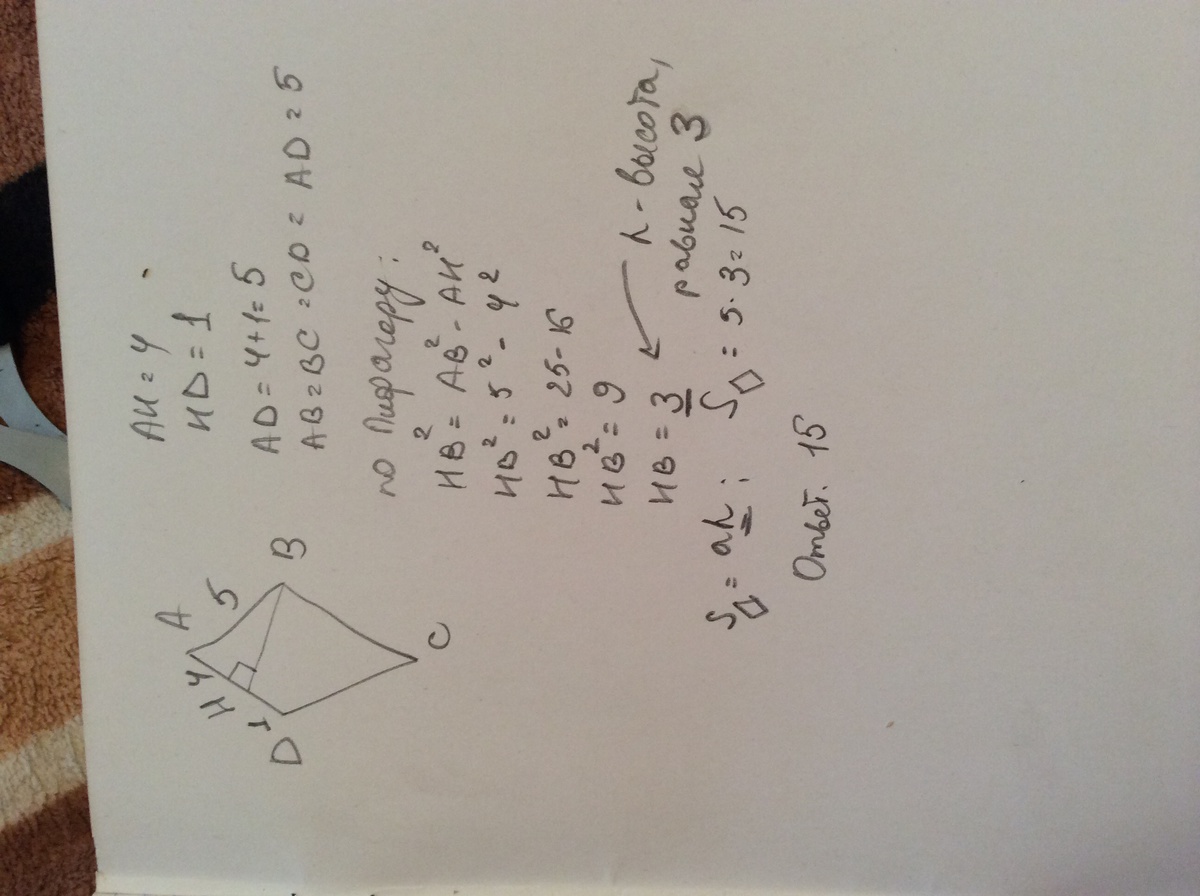 A
5
B
4
H
1
D
C
AH = 4
HD = 1
AD = 4+1 = 5
AB = BC = CD = AD = 5
по Пифагору:
HB² = AB² - AH²
HB² = 5² - 4²
HB² = 25 - 16
HB² = 9
HB = 3
h - высота,
равная 3
S◊ = ah; S◊ = 5·3 = 15
Ответ. 15